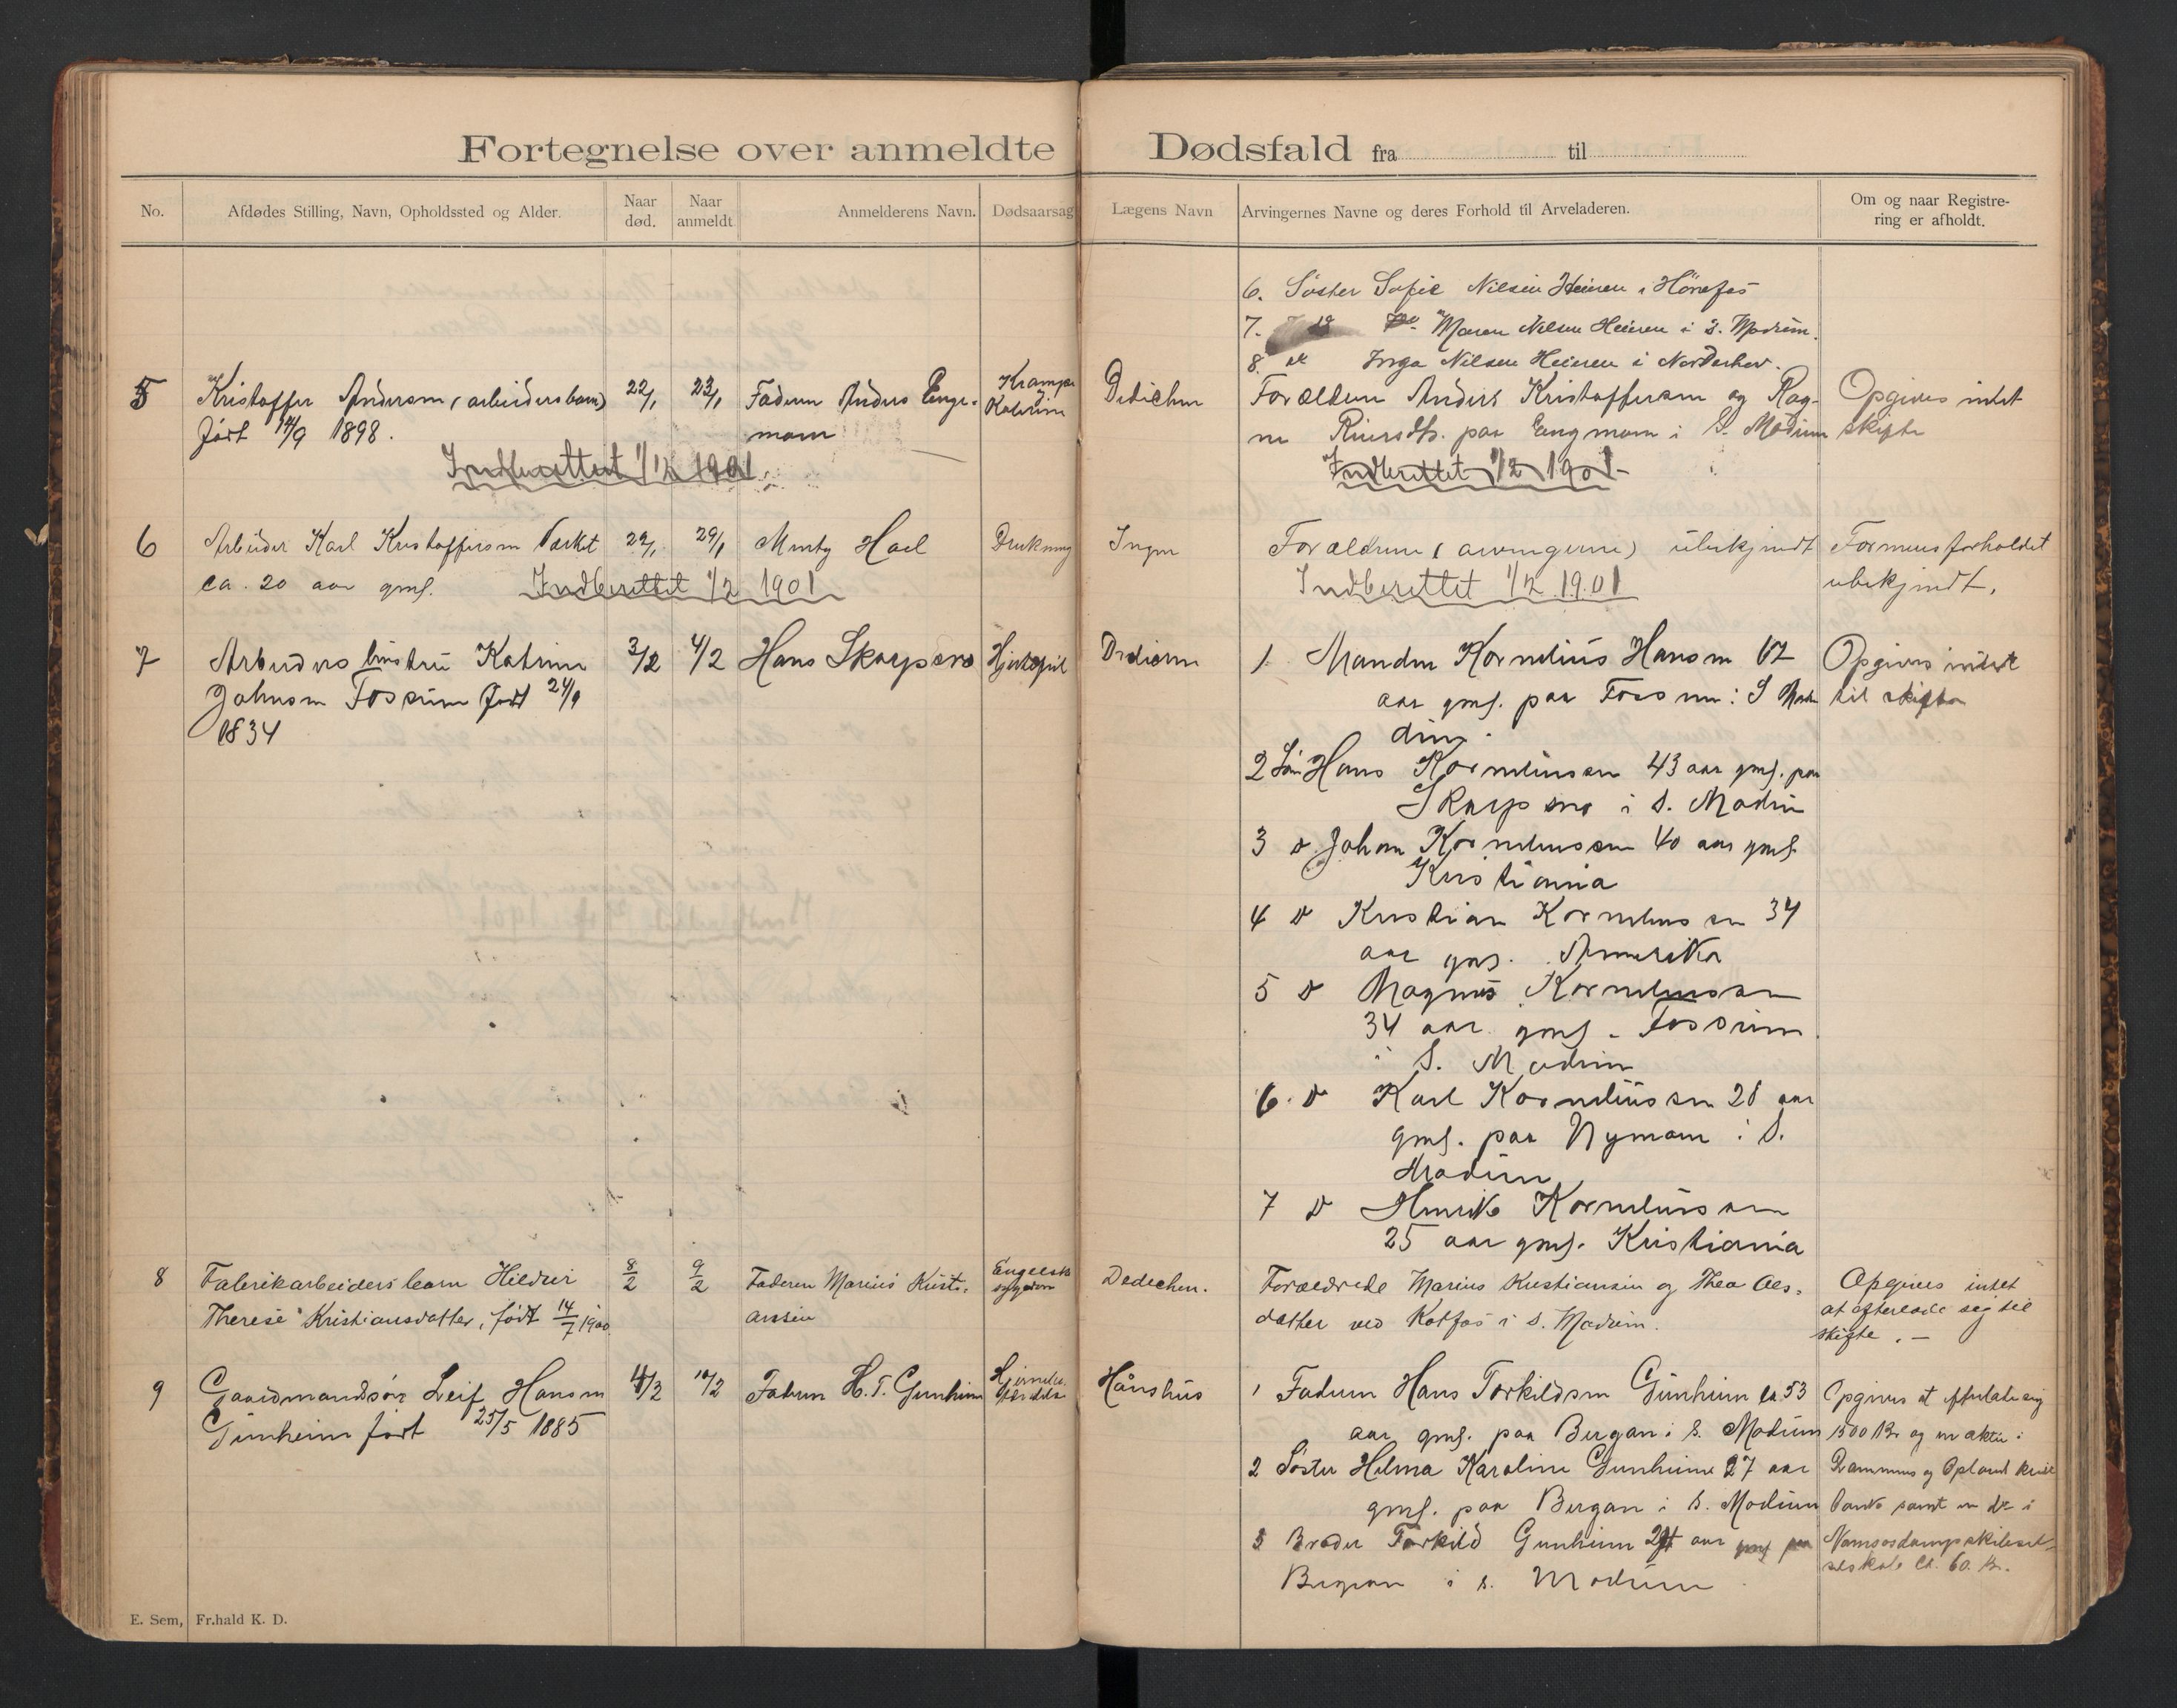 Fortegnelse over anmeldte Dødsfald fra til
No. Afdødes Stilling, Navn, Opholdssted og Alder. Naar død. Naar anmeldt Anmelderens Navn. Dødsaarsag Lægens Navn Arvingernes Navne og deres Forhold til Arveladeren. Om og naar Registrering er afholdt.
6. Søster Sofie Nilsen Heieren i Hønefos
7. Maren Nilsen Heieren i S. Modum.
8. Inga Nilsen Heieren i Norderhov.
5 Kristoffer Andersen (arbeidersbarn) 22/1 23/1 Faderen Anders Enge- Krampe Forældrene Anders Kristoffersen og Rag- Opgives intet
født 14/9 1898. moen i S. Modum skifte
Indberettet 1/2 1901. Indberettet 1/2 1901
6 Arbeider Karl Kristoffersen 29/1 29/1 Hael Drukning Ingen Forældrene (arvingerne) ubekjendt Formuesforholdet
ca. 20 aar gml. Indberettet 1/2 1901 Indberettet 1/2 1901 ubekjendt.
7 Arbeiders hustru Katrine 3/2 4/2 Hans Skarpsno Hjertefeil 1 Manden Kornelius Hansen Opgives intet
Johnsen Fossum født 24/9 aar gml. paa Fossum i S. Mo- til skifte
1834 dum.
2 Søn Hans Korneliussen 43 aar gml. paa
Skarpsno i S. Modum
3 do Johan Korneliussen 40 aar gml.
Kristiania
4 do Kristian Korneliussen 34
aar gml. Amerika
5 do Magnus Korneliussen
34 aar gml. Fossum
i S. Modum
6. do Karl Korneliussen 28 aar
gml. paa Nymoen i S.
Modum
7 do Henrik Korneliussen
25 aar gml. Kristiania
8 Fabrikarbeidersbarn Hildur 8/2 9/2 Faderen Marius Kristi- Engelsk Dedichen. Forældrede Marius Kristiansen og Thea Ols- Opgives intet
Therese Kristiansdatter, født 14/7 1900 ansen sygdom datter ved Kotfos i S. Modum. at efterlade sig til
skifte. –
9 Gaardmandssøn Leif Hansen 4/2 10/2 Faderen H. T. Gunheim Hånshus 1 Faderen Hans Torkildsen Gunheim ca 53 Opgives at efterlade sig
Gunheim født 25/5 1885 aar gml. paa Bergan i S. Modum 1500 Kr. og en aktie i
2 Søster Helma Karoline Gunheim 27 aar Drammens og Oplands kredit
gml. paa Bergan i S. Modum bank samt en do i
3 Broder Torkild Gunheim aar gml paa Namsosdampskibssel-
Bergan i S. Modum selskab ca. 60. Kr.
E. Sem, Fr.hald K. D.